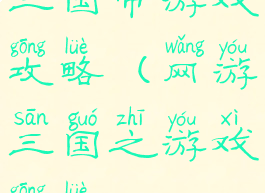 三国布游戏
gōng lüè wǎng yóu
攻略(网游
sān guó zhī yóu xì
三国之游戏
gōng lüè